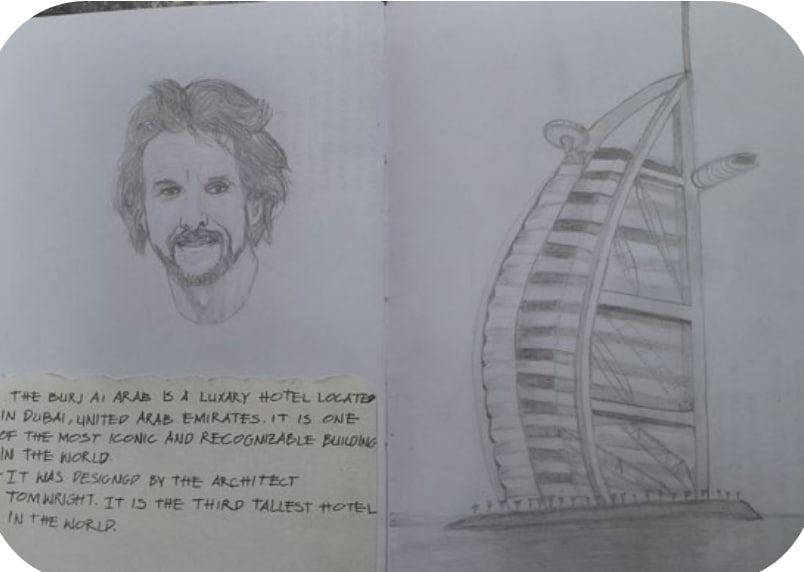 THE BURJ Al ARAB IS A LUXARY HOTEL LOCATED
IN DUBAI, UNITED ARAB EMIRATES. IT IS ONE
OF THE MOST ICONIC AND RECOGNIZABLE BUILDING
IN THE WORLD.
IT WAS DESIGNGD BY THE ARCHITECT
TOM WRIGHT. IT IS THE THIRD TALLEST HOTEL
IN THE WORLD.